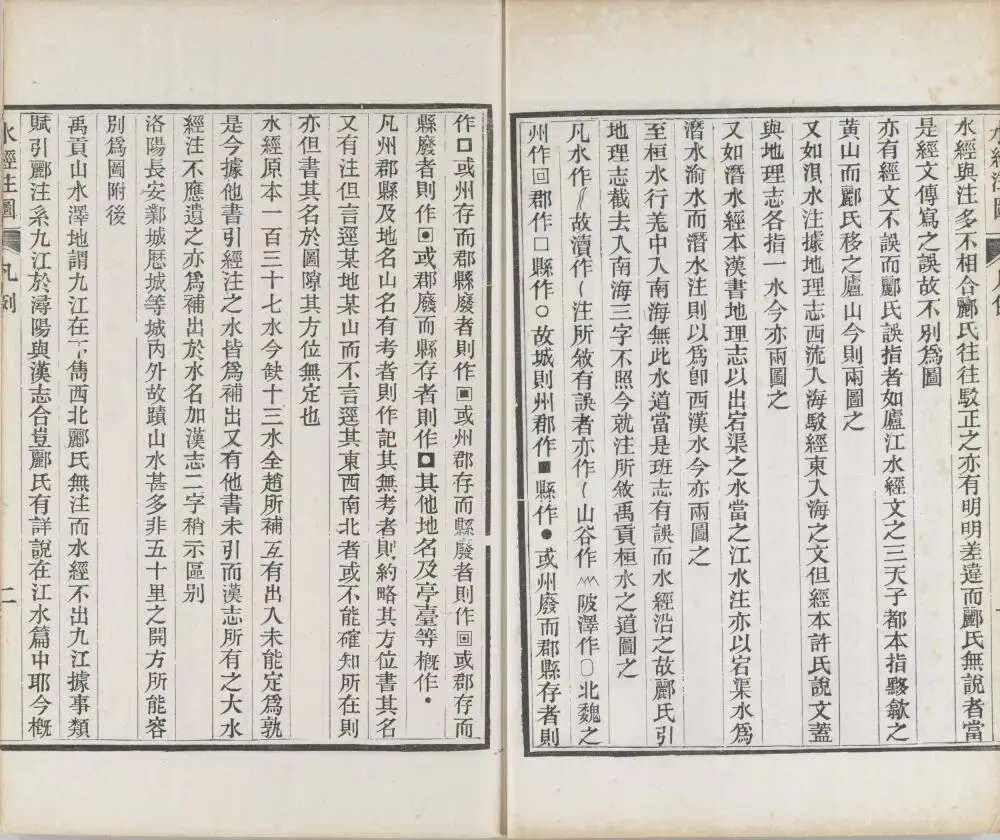 水經與注多不相合酈氏往往駁正之亦有明明差違而酈氏無說者當
是經文傳寫之誤故不別爲圖
亦有經文不誤而酈氏誤指者如廬江水經文之三天子都本指黟歙之
黃山而酈氏移之廬山今則兩圖之
又如浿水注據地理志西流入海駁經東入海之文但經本許氏說文蓋
與地理志各指一水今亦兩圖之
又如潛水經本漢書地理志以出宕渠之水當之江水注亦以宕渠水爲
潛水渝水而潛水注則以爲卽西漢水今亦兩圖之
至桓水行羌中入南海無此水道當是班志有誤而水經沿之故酈氏引
地理志截去入南海三字不照今就注所敘禹貢桓水之道圖之
凡水作⟨故瀆作⟨注所敘有誤者亦作⟨山谷作〰陂澤作〇北魏之
州作回郡作□縣作○故城則州郡作■縣作●或州廢而郡縣存者則
作□或州存而郡縣廢者則作▣或州郡存而縣廢者則作回或郡存而
縣廢者則作⊡或郡廢而縣存者則作◘其他地名及亭臺等槪作•
凡州郡縣及地名山名有考者則作記其無考者則約略其方位書其名
又有注但言逕某地某山而不言逕其東西南北者或不能確知所在則
亦但書其名於圖隙其方位無定也
水經原本一百三十七水今缺十三水全趙所補互有出入未能定爲孰
是今據他書引經注之水皆爲補出又有他書未引而漢志所有之大水
經注不應遺之亦爲補出於水名加漢志二字稍示區別
洛陽長安鄴城㦄城等城內外故蹟山水甚多非五十里之開方所能容
別爲圖附後
禹貢山水澤地謂九江在下雋西北酈氏無注而水經不出九江據事類
賦引酈注系九江於潯陽與漢志合豈酈氏有詳說在江水篇中耶今槪
水經注圖 凡例 二